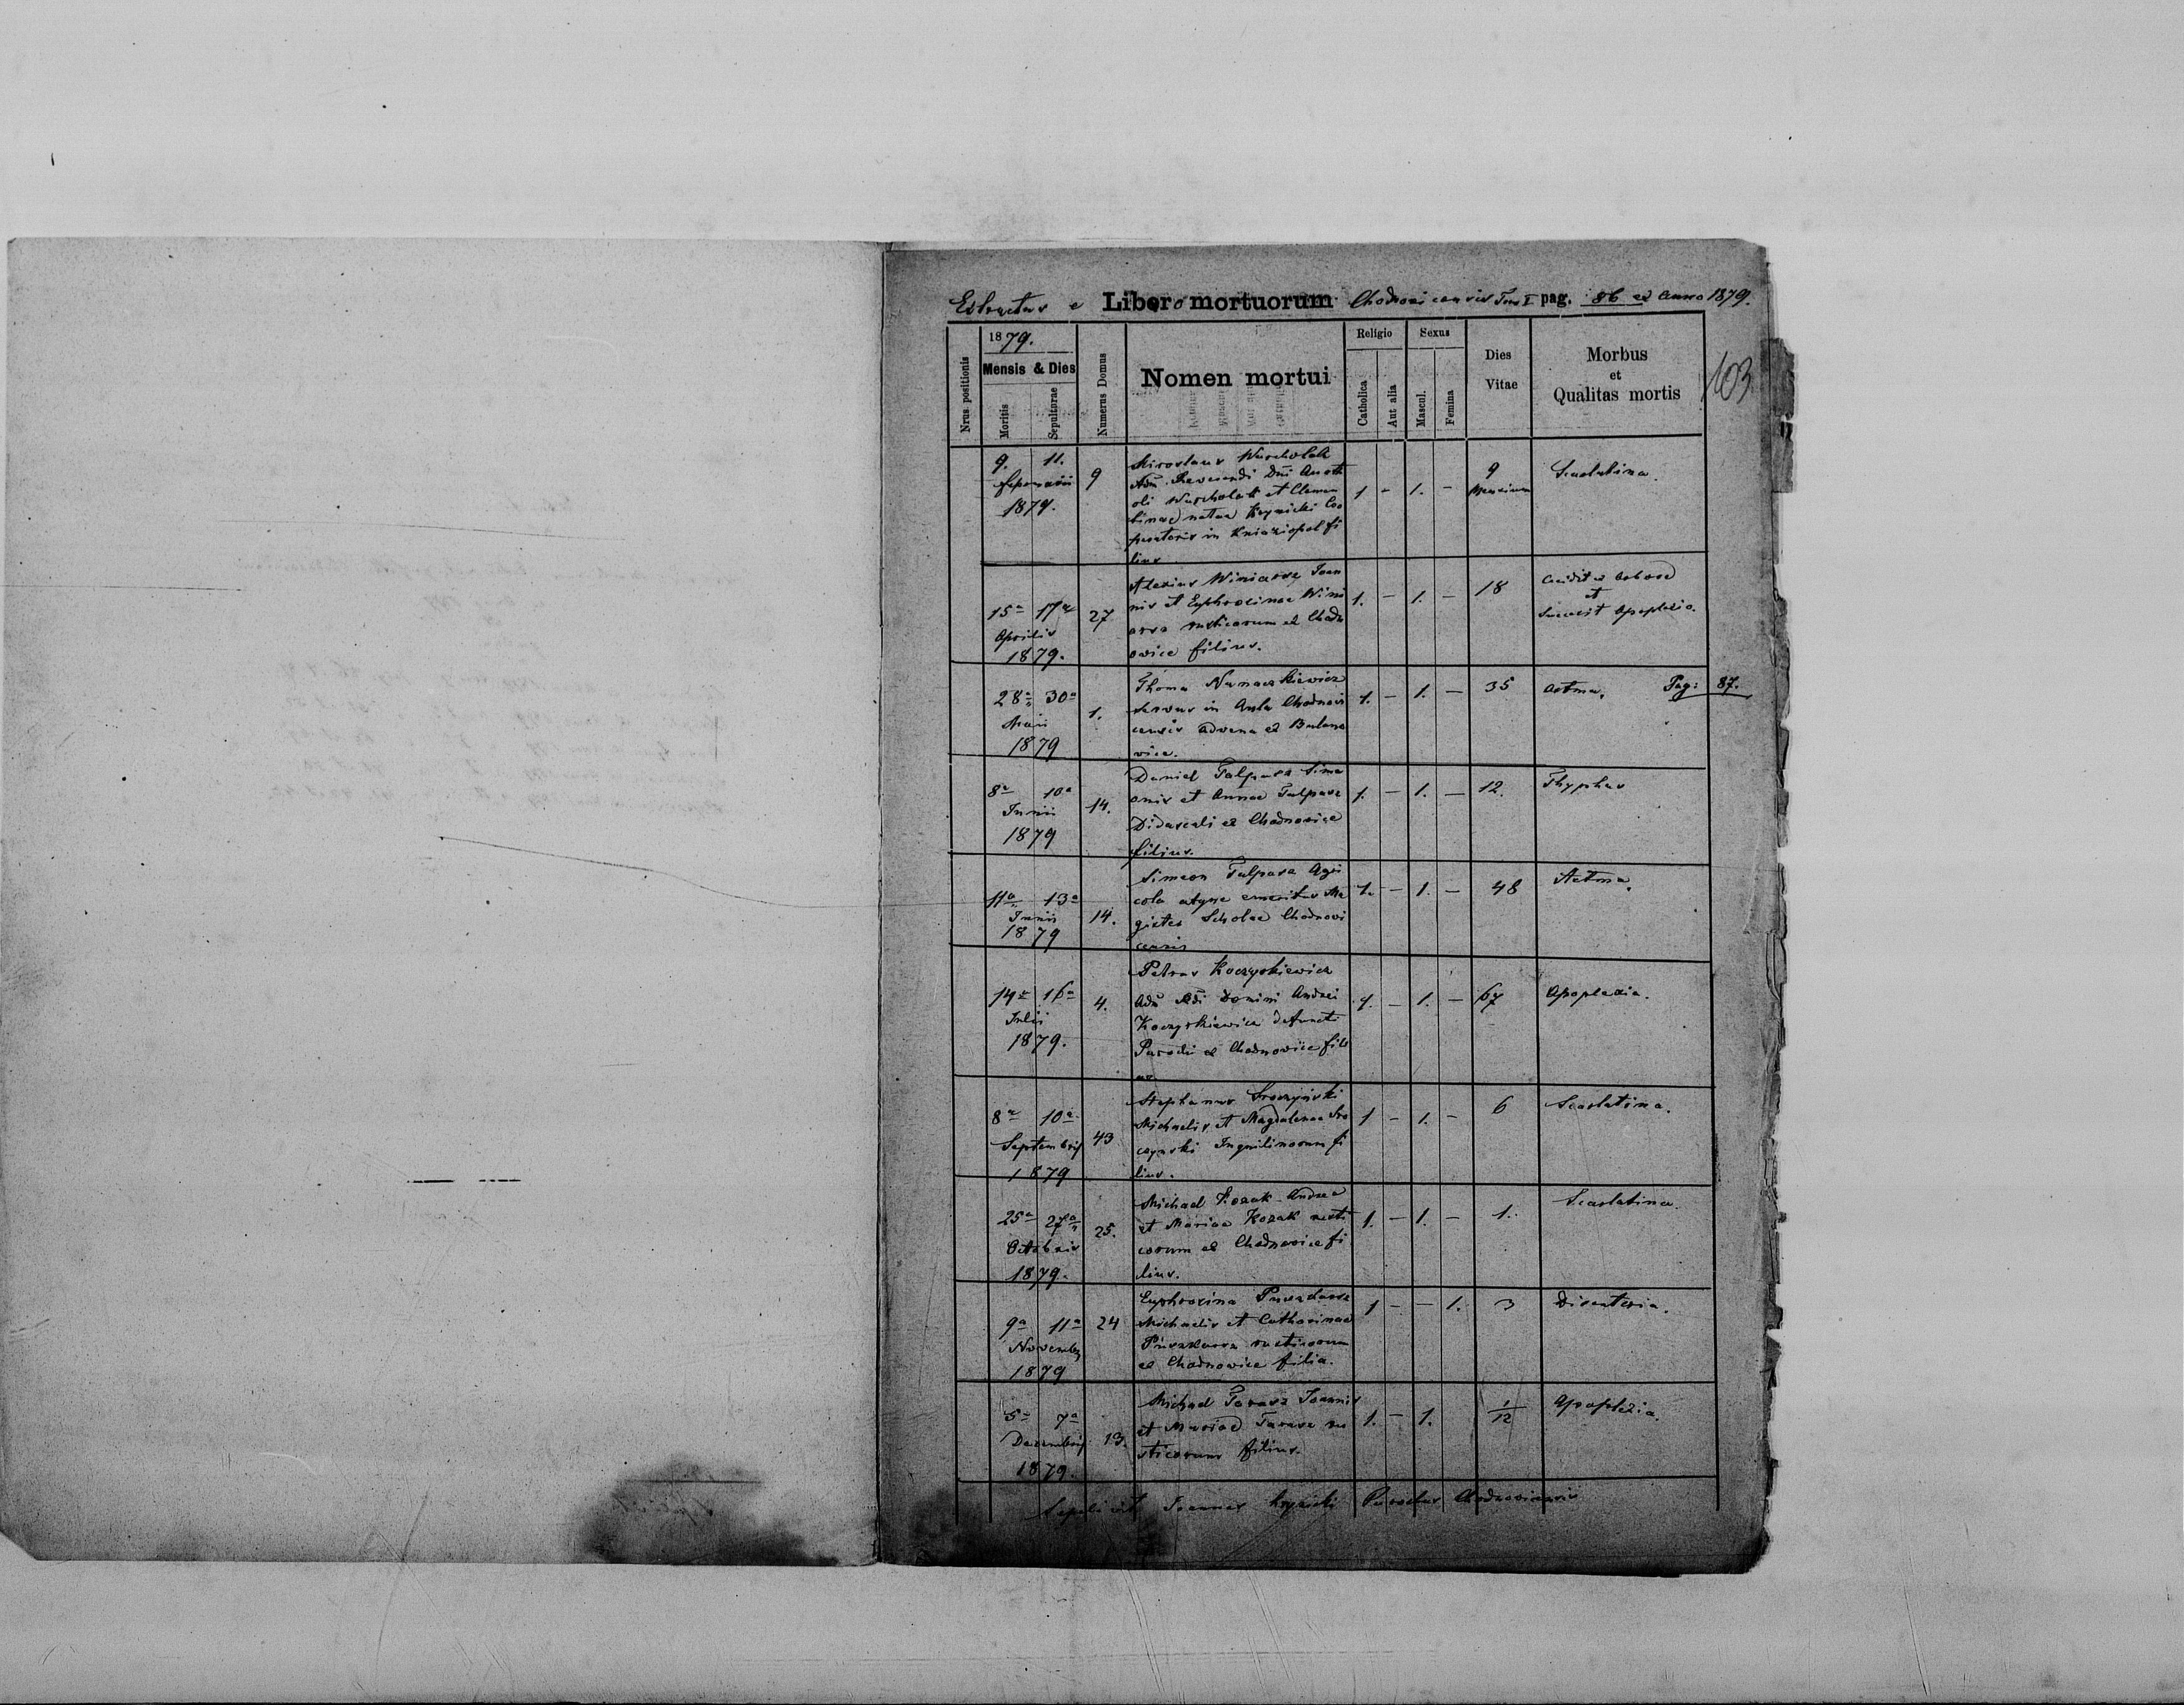 Extractus e Libero mortuorum Chodnovicensis Tom I pag. 86 ex Anno 1879.
103
Nrus. positionis
1879.
Mensis & Dies
Mortis
Sepulturae
Numerus Domus
Nomen mortui
Religio
Catholica
Aut alia
Sexus
Mascul.
Femina
Dies Vitae
Morbus
et
Qualitas mortis
9. 11.
1879.
9
Miroslaus
Reverendi Dni
et Clemen
tinae natae Krynicki Coo
peratoris in Kniaziopol fi
lius
1 - 1. -
9
Mensium
Scarlatina.
15a 17a
Aprilis
1879.
27
Alexius Winiarz Joan
nis et Euphrosinae Wini
arz rusticorum ex Chodn
owice filius.
1. - 1. -
18
Cecidit ex arbore
et
Apoplexio.
28a 30a
Maii
1879
1.
Thoma
servus in Aula Chodnovi
censis advena ex
wice.
1. - 1. -
35
Astma.
Pag: 87.
8a 10a
Junii
1879
14.
Daniel Talpasz Sime
onis et Annae Talpasz
Didascali ex Chodnowice
filius.
1. - 1. -
12.
Thyphus
11a 13a
Junii
1879
14.
Simeon Talpasz Agri
cola atque emeritus Ma
gister Scholae Chodnovi
censis
1. - 1. -
48
Astma.
14a 16a
Julii
1879.
4.
Petrus Koczyrkiewicz
Adm Rdi Domini Andrei
Koczyrkiewicz defuncti
Parochi ex Chodnowice fili
us
1. - 1. -
67
Apoplexia.
8a 10a
Septembris
1879
43
Stephanus Sroczyński
Michaelis et Magdalenae Sro
czynski Inquilinorum fi
lius.
1 - 1. -
6
Scarlatina.
25a 27a
Octobris
1879.
25.
Michael Kozak Andrea
et Mariae Kozak rusti
corum ex Chodnowice fi
lius.
1. - 1. -
1.
Scarlatina.
9a 11a
Novembr
1879
24
Euphrosina
Michaelis et Catharinae
rusticorum
ex Chodnowice filia.
1 - - 1.
3
Disenteria.
5a 7a
Decembris
1879.
13.
Michael Tarasz Joannis
et Mariae Tarasz ru
sticorum filius.
1. - 1.
1/12
Apoplexia.
Sepelivit Joannes Krynicki Parochus Chodnovicensis